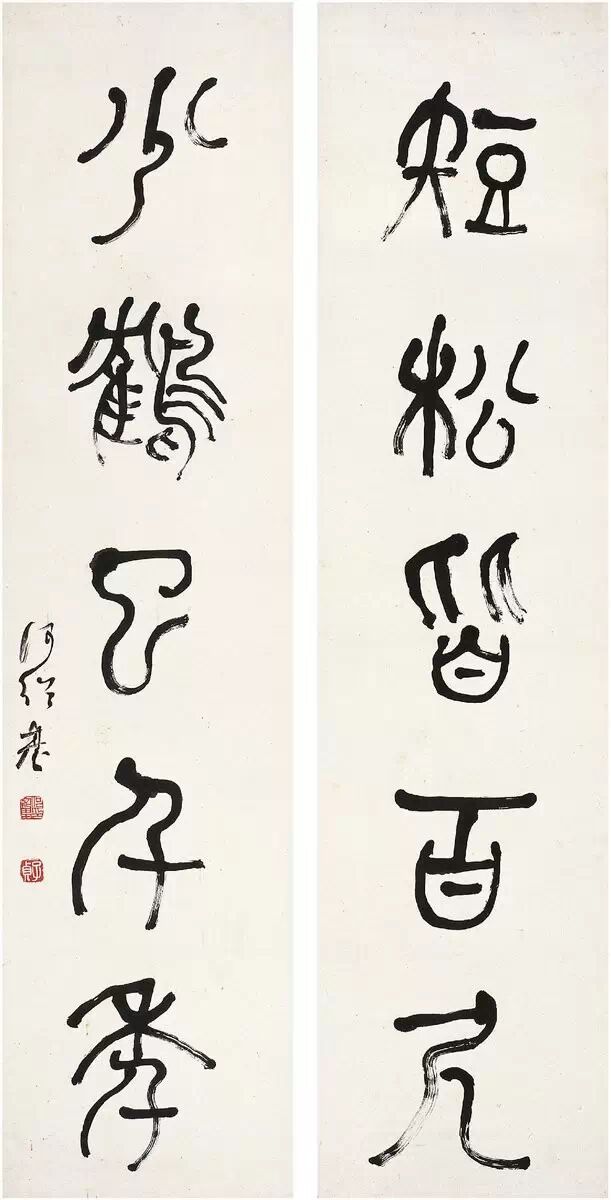 短松皆百尺
少鶴已千年
何紹基
子貞